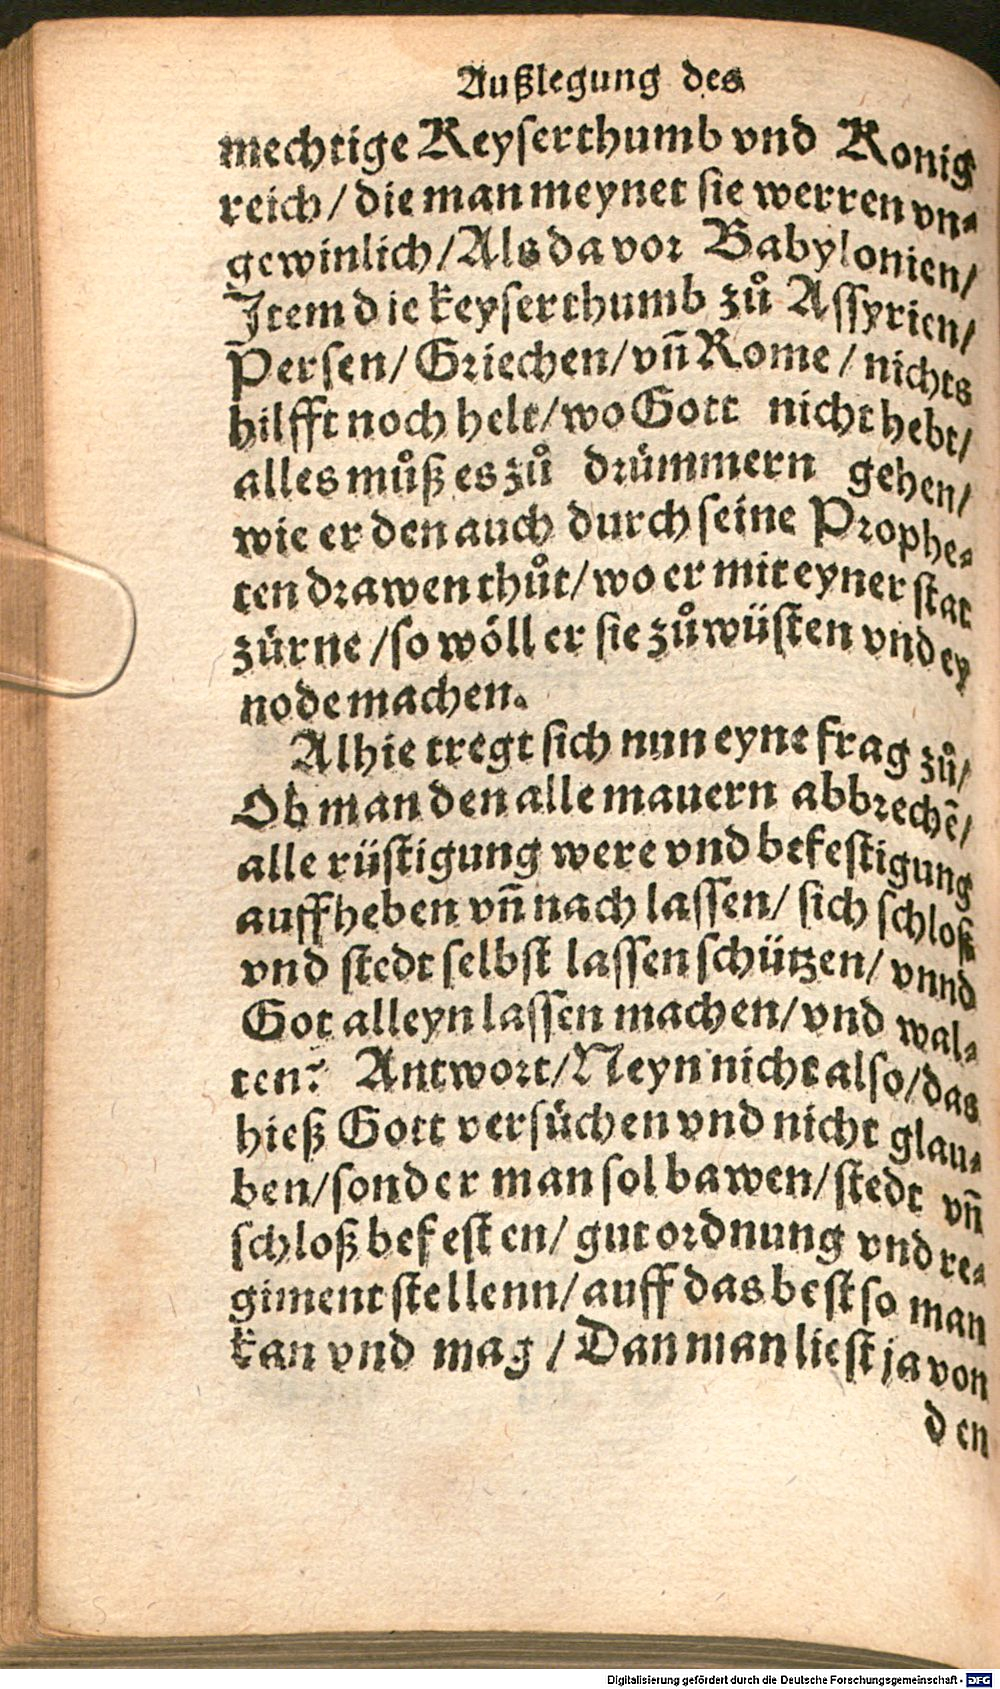 Außlegung des
mechtige Keyserthumb vnd Konig
reich/ die man meynet sie werren vn⸗
gewinlich/ Als da vor Babylonien/
Item die keyserthumb zů Assyrien/
Persen/ Griechen/ vn̄ Rome / nichts
hilfft noch helt/ wo Gott nicht hebt/
alles můß es zů drümmern gehen/
wie er den auch durch seine Prophe⸗
ten drawen thůt/ wo er mit eyner stat
zürne /so wöll er sie zů wüsten vnd ey
node machen.
Alhie tregt sich nun eyne frag zů/
Ob man den alle mauern abbrechē/
alle rüstigung were vnd befestigung
auffheben vn̄ nach lassen/ sich schloß
vnd stedt selbst lassen schützen/ vnnd
Got alleyn lassen machen/ vnd wal⸗
ten? Antwort/ Neyn nicht also/ das
hieß Gott versüchen vnd nicht glau⸗
ben/ sonder man sol bawen/ stedt vn̄
schloß befesten/ gut ordnung vnd re⸗
giment stellenn/ auff das best so man
kan vnd mag / Dan man liest ja von
den
Digitalisierung gefördert durch die Deutsche Forschungsgemeinschaft - DFG